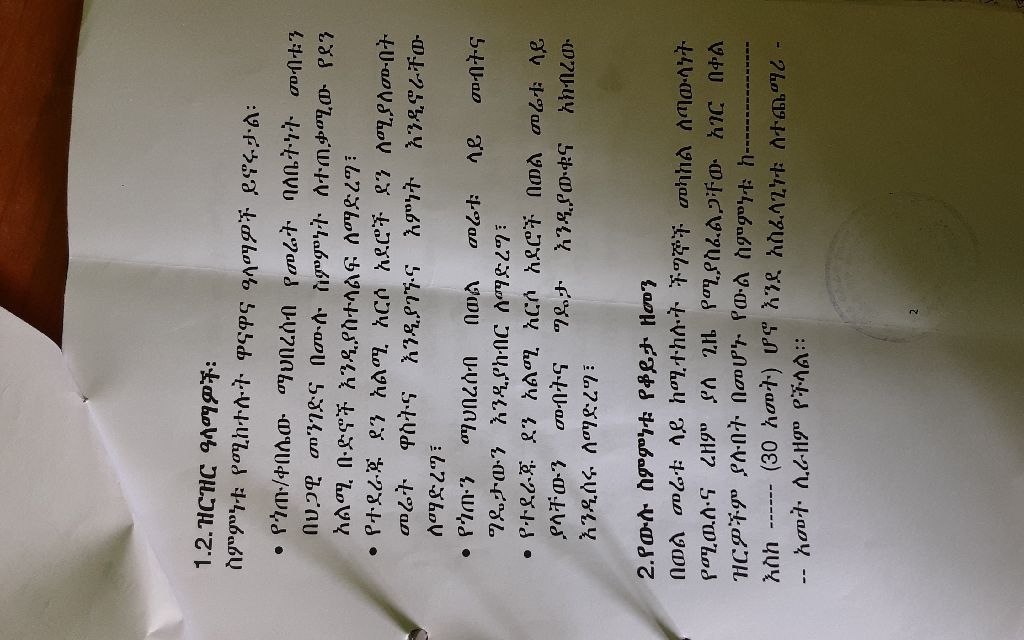 1.2.ዝርዝር ዓላማዎች፡
ስምምነቱ የሚከተሉት ዋናዋና ዓላማዎች ይኖሩታል፡
• የነጡ/ቀበሌው ማህበረሰብ የመሬት ባለቤትነት መብቱን
በህጋዊ መንገድና በሙሉ ስምምነት ለተጠቃሚው የደን
አልሚ ቡድኖች እንዲያስተላልፍ ለማድረግ፤
• የተደራጁ ደን አልሚ አርሶ አደሮች ደን ለሚያለሙበት
መሬት ዋስትና እንዲያገኙና እምነት እንዲኖራቸው
ለማድረግ፤
• የነጡን ማህበረሰብ በወል መሬቱ ላይ መብትና
ግዴታውን እንዲያከብር ለማድረግ፤
• የተደራጁ ደን አልሚ አርሶ አደሮች በወል መሬቱ ላይ
ያላቸውን መብትና ግዴታ እንዲያውቁና አክብረው
እንዲሰሩ ለማድረግ፤
2.የውሉ ስምምነቱ የቆይታ ዘመን
በወል መሬቱ ላይ ከሚተከሉት ችግኞች መካከል ለጣውላነት
የሚውሉና ረዘም ያለ ጊዜ የሚያስፈልጋቸው አገር በቀል
ዝርዎችም ያሉበት በመሆኑ የውል ስምምነቱ ከ---------------
እስከ ------ (30 አመት) ሆኖ እንደ አስፈላጊነቱ ለተጨማሪ -
-- አመት ሊራዘም የችላል።
2